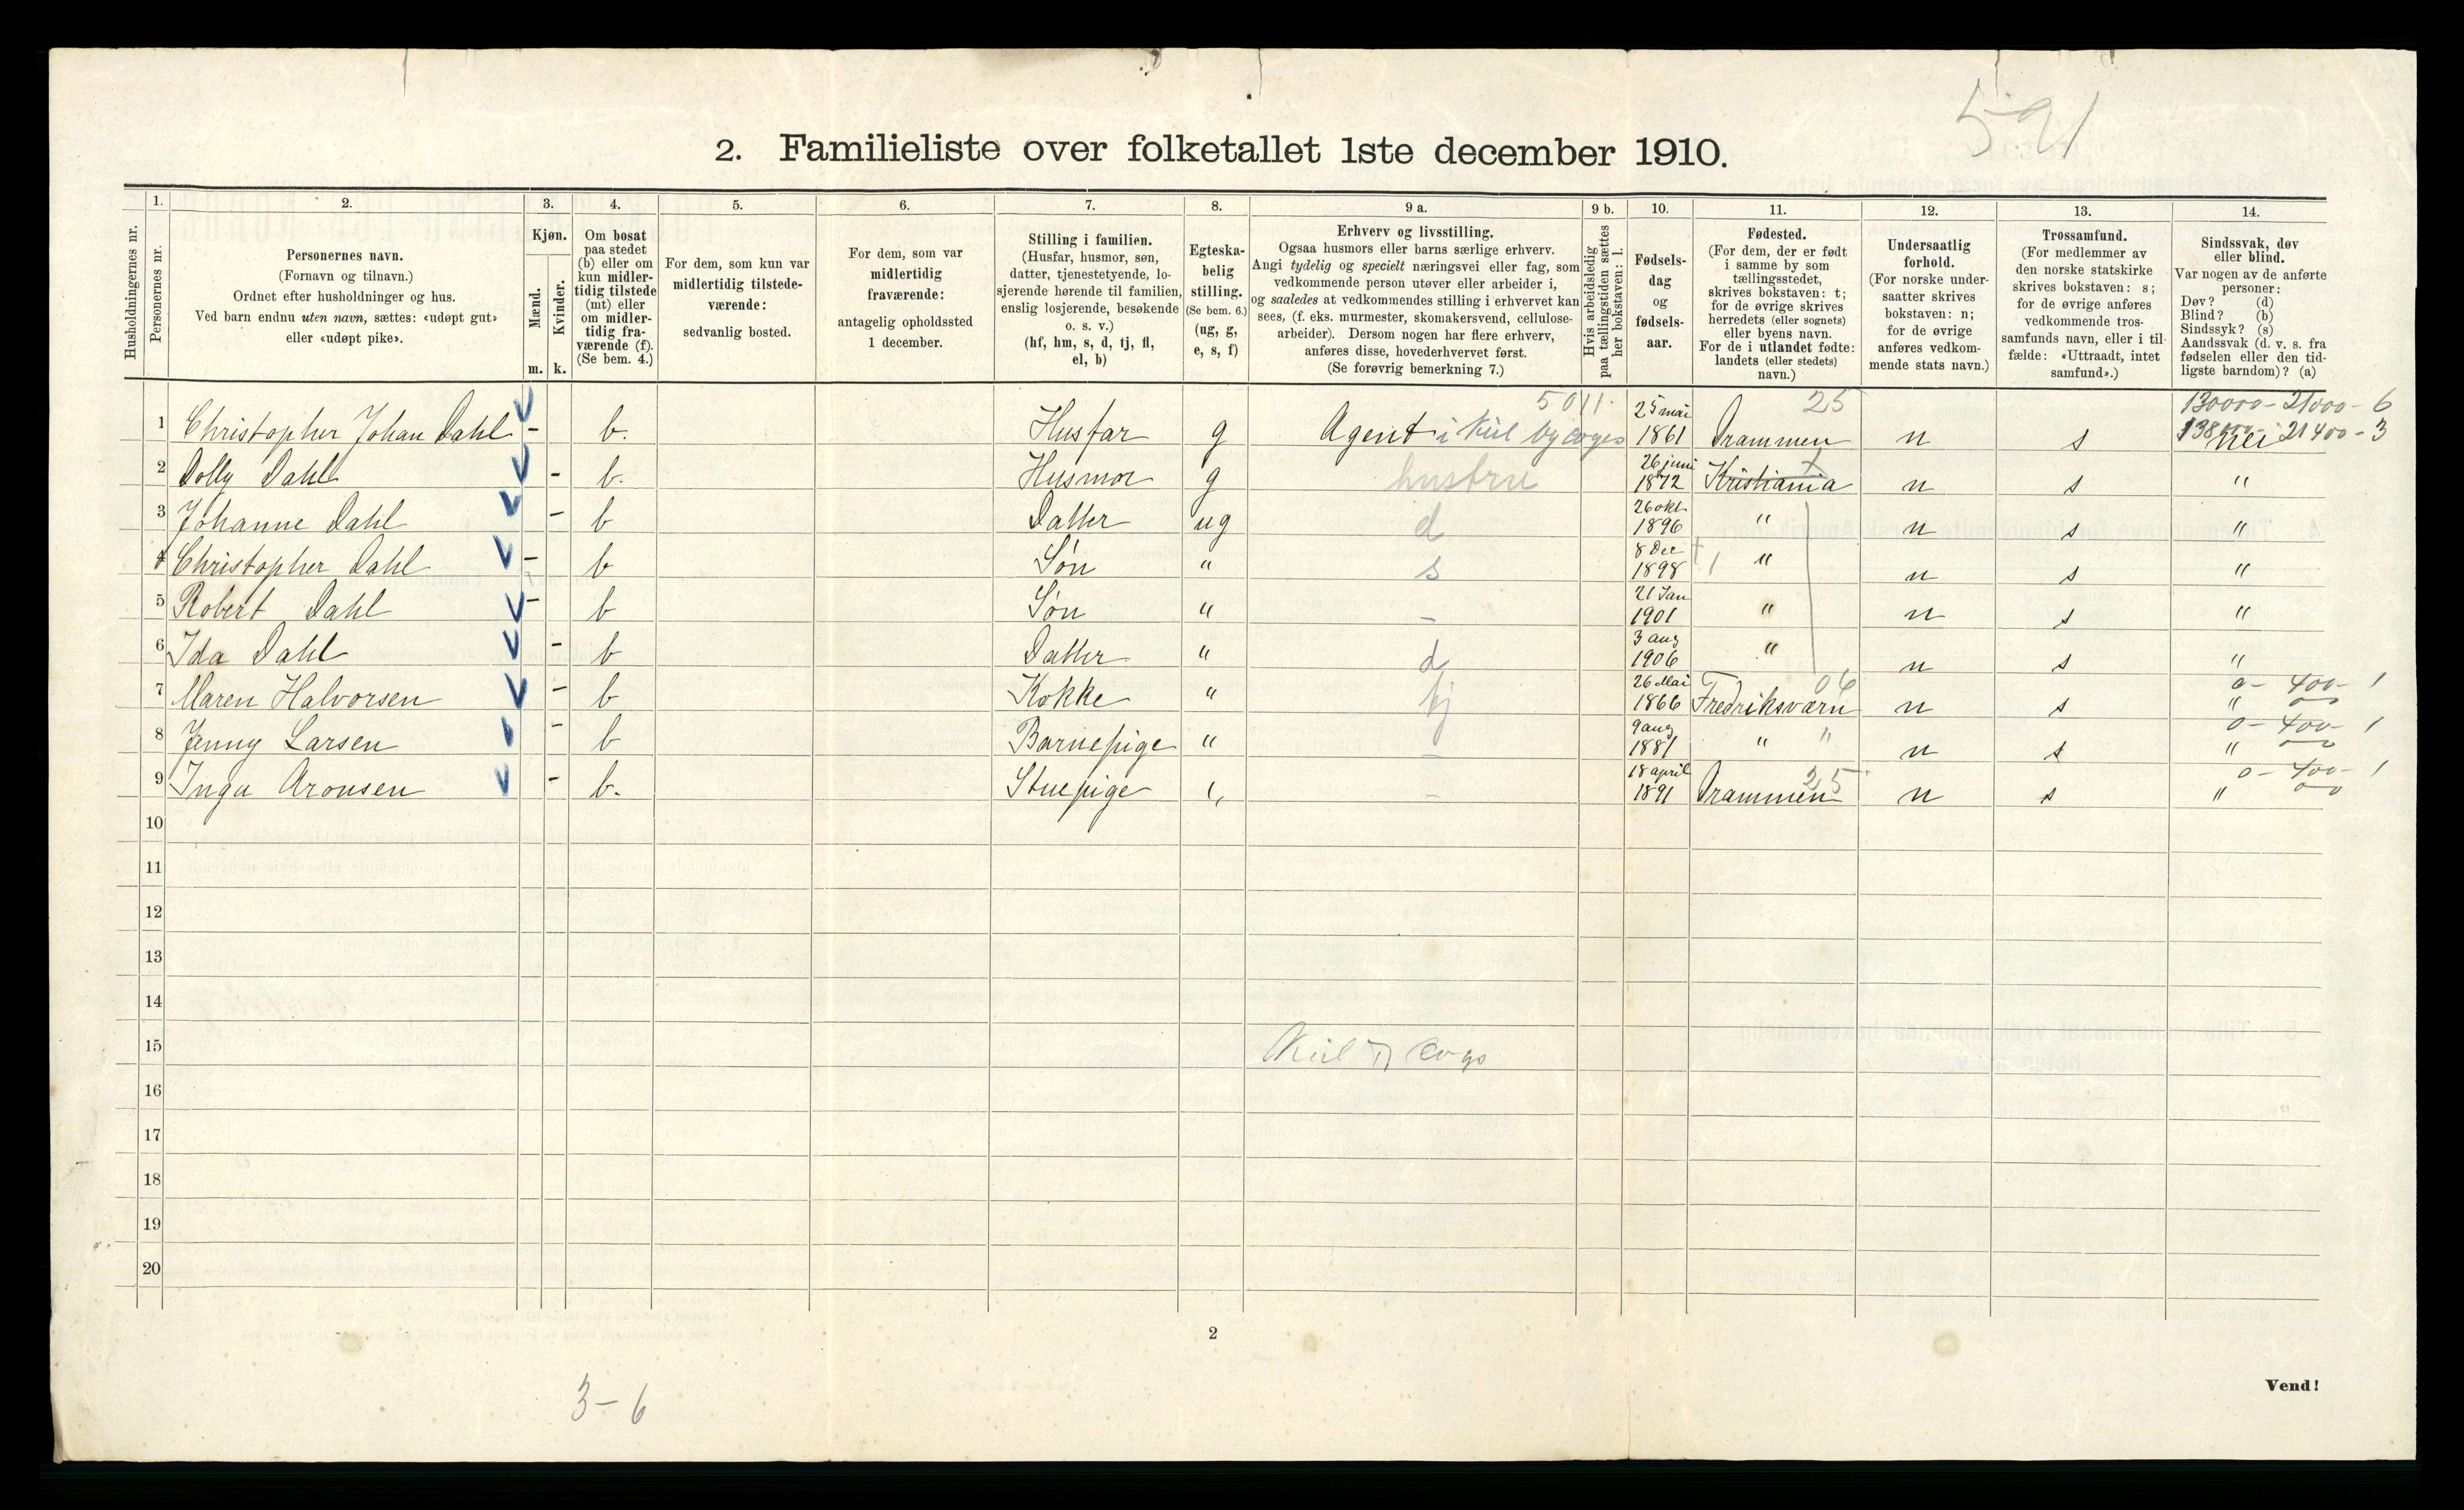 591
2. Familieliste over folketallet 1ste december 1910.
Husholdningernes nr.
1. Personernes nr.
2. Personernes navn.
(Fornavn og tilnavn.)
Ordnet efter husholdninger og hus.
Ved barn endnu uten navn, sættes: «udøpt gut»
eller «udøpt pike».
3. Kjøn.
Mænd. m.
Kvinder. k.
4. Om bosat
paa stedet
(b) eller om
kun midler-
tidig tilstede
(mt) eller
om midler-
tidig fra-
værende (f).
(Se bem. 4.)
5. For dem, som kun var
midlertidig tilstede-
værende:
sedvanlig bosted.
6. For dem, som var
midlertidig
fraværende:
antagelig opholdssted
1 december.
7. Stilling i familien.
(Husfar, husmor, søn,
datter, tjenestetyende, lo-
sjerende hørende til familien,
enslig losjerende, besøkende
o. s. v.)
(hf, hm, s, d, tj, fl,
el, b)
8. Egteska-
belig
stilling.
(Se bem. 6.)
(ug, g,
e, s, f)
9 a. Erhverv og livsstilling.
Ogsaa husmors eller barns særlige erhverv.
Angi tydelig og specielt næringsvei eller fag, som
vedkommende person utøver eller arbeider i,
og saaledes at vedkommendes stilling i erhvervet kan
sees, (f. eks. murmester, skomakersvend, cellulose-
arbeider). Dersom nogen har flere erhverv,
anføres disse, hovederhvervet først.
(Se forøvrig bemerkning 7.)
9 b. Hvis arbeidsledig
paa tællingstiden sættes
her bokstaven: l.
10. Fødsels-
dag
og
fødsels-
aar.
11. Fødested.
(For dem, der er født
i samme by som
tællingsstedet,
skrives bokstaven: t;
for de øvrige skrives
herredets (eller sognets)
eller byens navn.
For de i utlandet fødte:
landets (eller stedets)
navn.)
12. Undersaatlig
forhold.
(For norske under-
saatter skrives
bokstaven: n;
for de øvrige
anføres vedkom-
mende stats navn.)
13. Trossamfund.
(For medlemmer av
den norske statskirke
skrives bokstaven: s;
for de øvrige anføres
vedkommende tros-
samfunds navn, eller i til-
fælde: «Uttraadt, intet
samfund».)
14. Sindssvak, døv
eller blind.
Var nogen av de anførte
personer:
Døv? (d)
Blind? (b)
Sindssyk? (s)
Aandssvak (d. v. s. fra
fødselen eller den tid-
ligste barndom)? (a)
5011. 25 130000 - 21000 - 6
1 Christopher Johan Dahl - b. Husfar g Agent i 25 mai 1861 Drammen n s nei 21400 - 3
2 Dolly Dahl - b. Husmor g hustru 26 juni 1872 Kristiania t n s "
3 Johanne Dahl - b Datter ug d 26 okt 1896 " n s "
4 Christopher Dahl - b Søn " s 8 Dec 1898 " n s "
5 Robert Dahl - b Søn " - 21 Jan 1901 " n s "
6 Ida Dahl - b Datter " d 3 aug 1906 " n s "
7 Maren Halvorsen - b Kokke " tj 26 Mai 1866 Fredriksværn 06 n s " 0 - 400 - 1
8 Jenny Larsen - b Barnepige " - 9 aug 1881 " " n s " 0 - 400 - 1
9 Inga Aronsen - b. Stuepige " - 18 april 1891 Drammen 25 n s " 0 - 400 - 1
10
11
12
13
14
15
16
17
18
19
20
2
Vend!
3-6